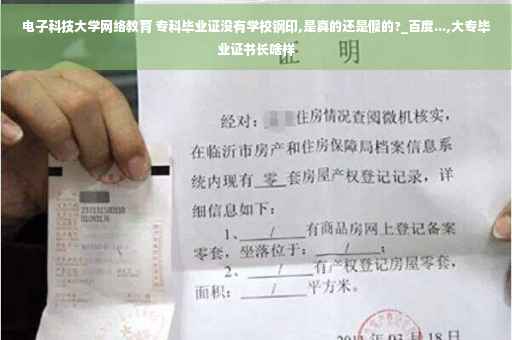 电子科技大学网络教育 专科毕业证没有学校钢印,是真的还是假的?_百度...,大专毕
业证书长啥样
证 明
经对: 住房情况查阅微机核实，
在临沂市房产和住房保障局档案信息系
统内现有 零 套房屋产权登记记录，详
细信息如下：
1、 / 有商品房网上登记备案
零套，坐落位于： / ；
2、 / 有产权登记房屋零套，
面积： / 平方米。